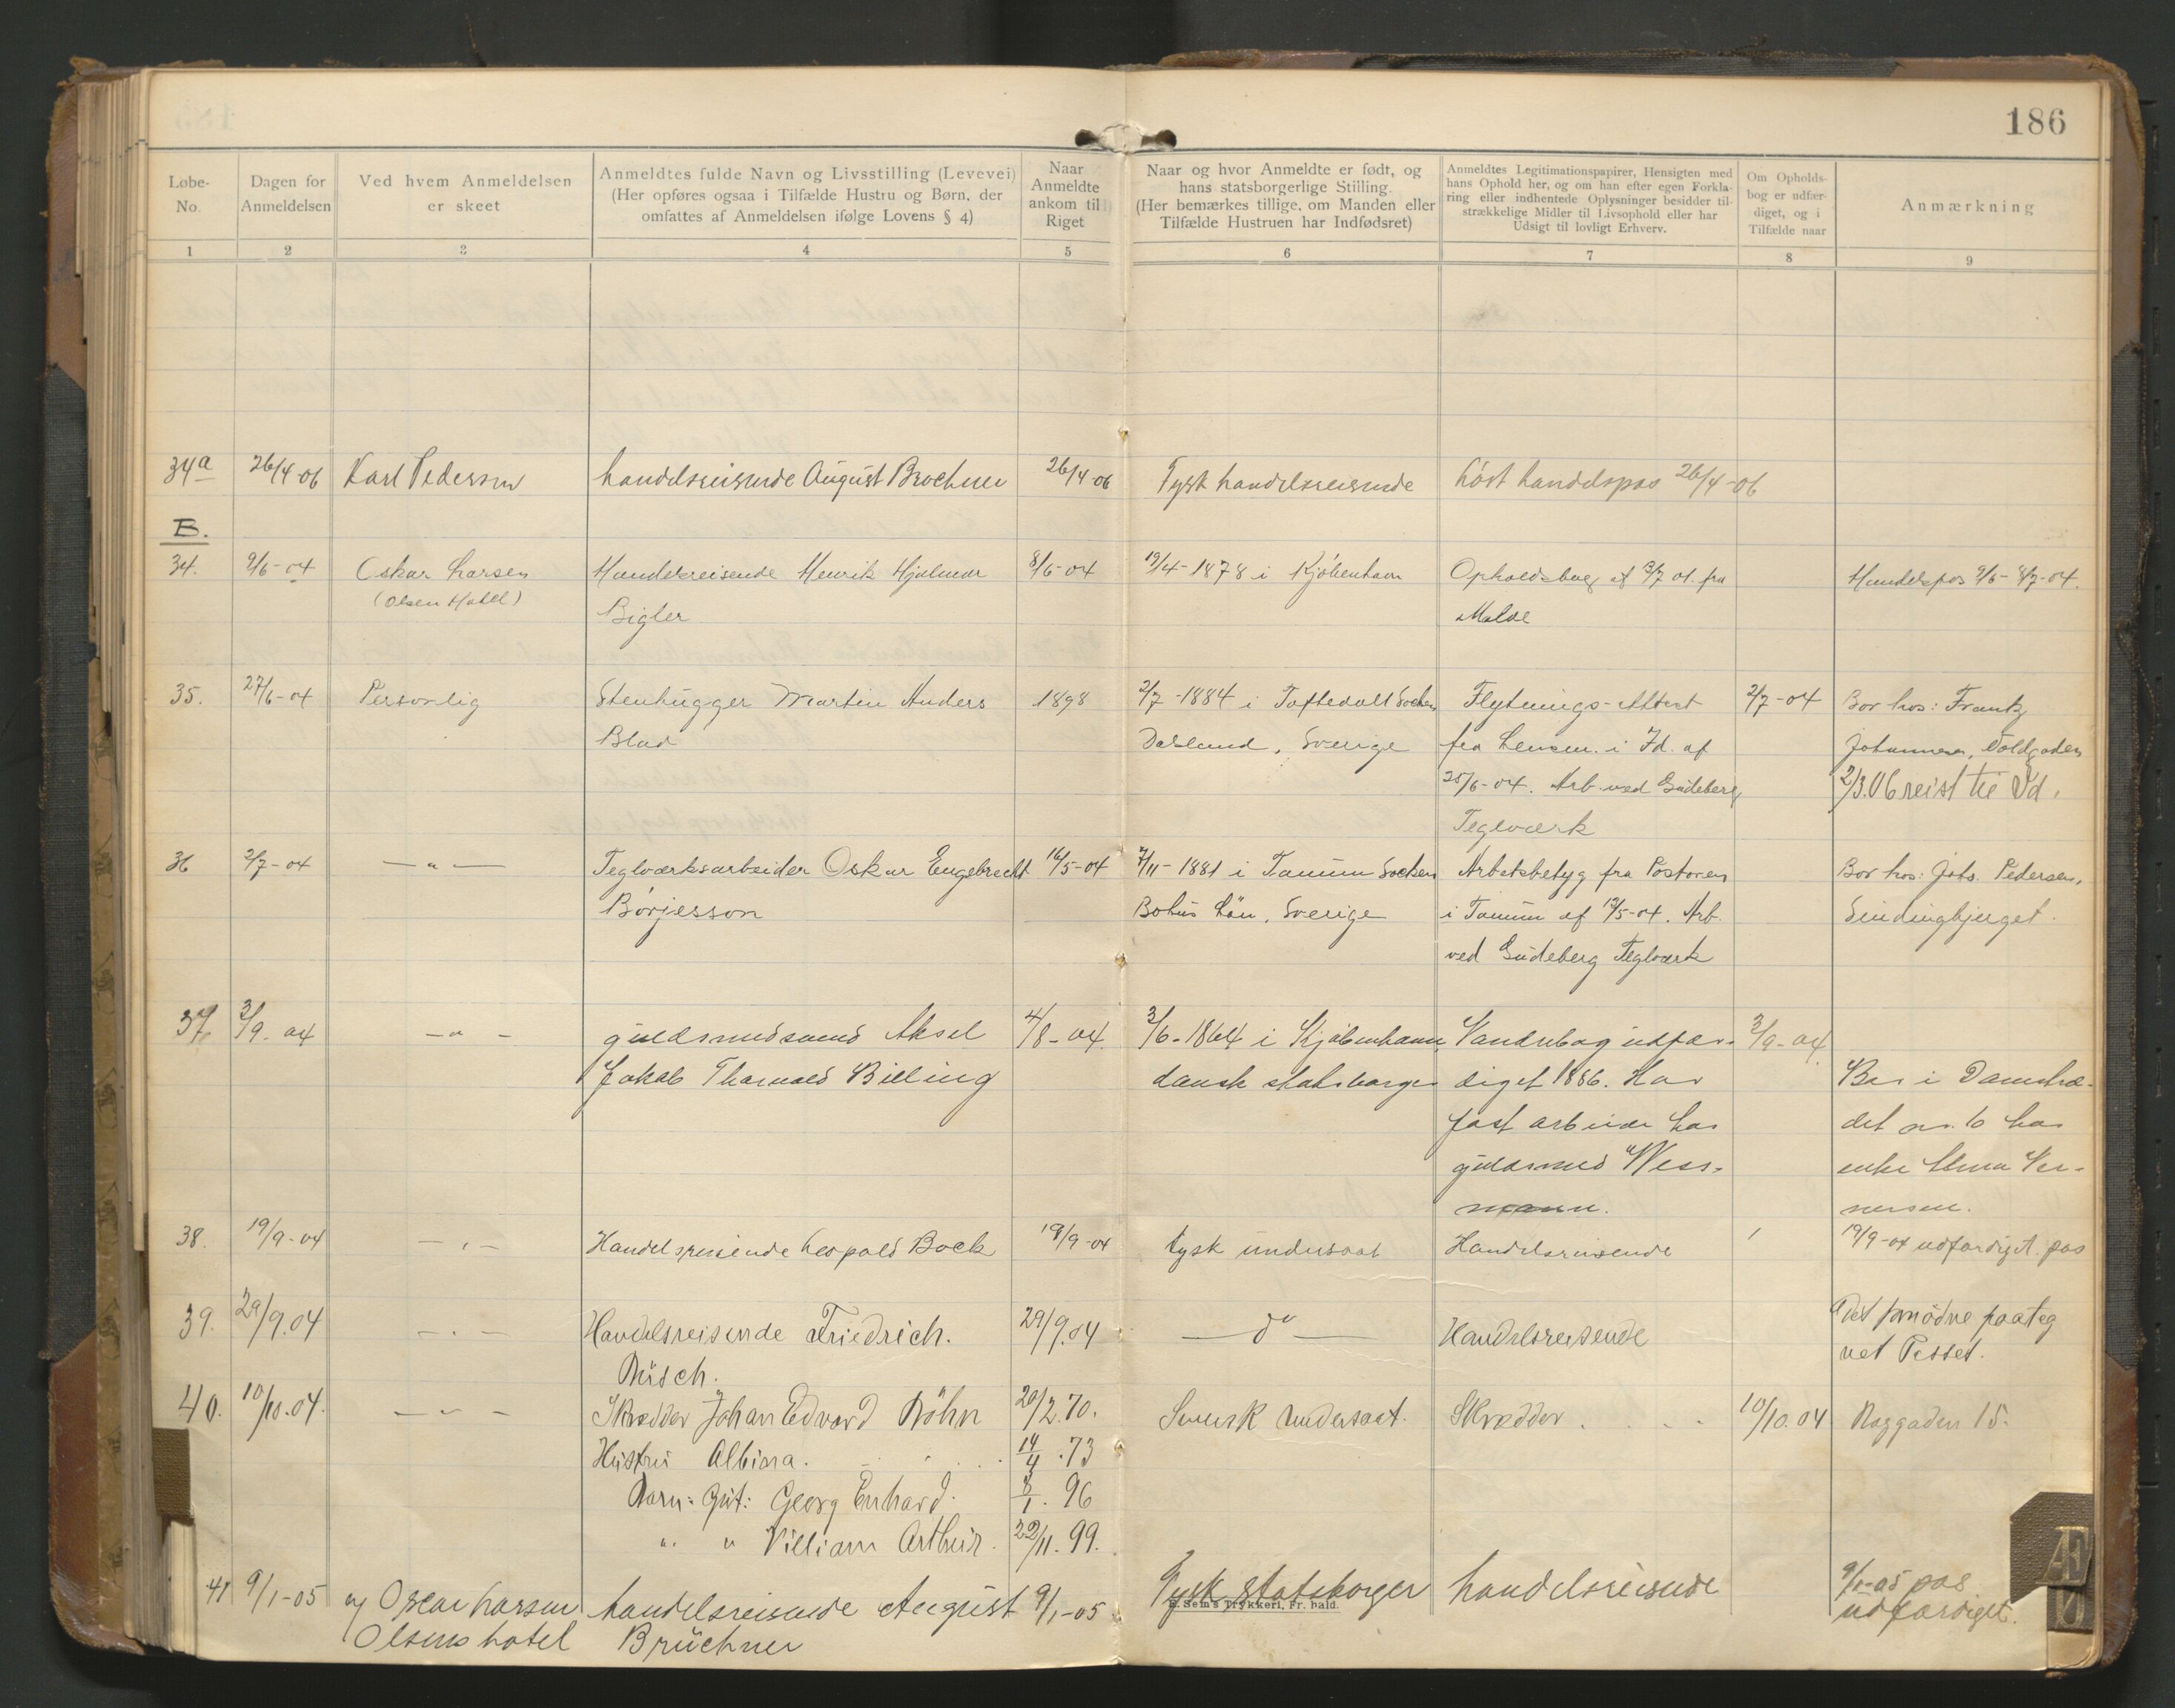 186
Løbe-
No.
Dagen for
Anmeldelsen
Ved hvem Anmeldelsen
er skeet
Anmeldtes fulde Navn og Livsstilling (Levevei)
(Her opføres ogsaa i Tilfælde Hustru og Børn, der
omfattes af Anmeldelsen ifølge Lovens § 4)
Naar
Anmeldte
ankom til
Riget
Naar og hvor Anmeldte er født, og
hans statsborgerlige Stilling.
(Her bemærkes tillige, om Manden eller
Tilfælde Hustruen har Indfødsret)
Anmeldtes Legitimationspapirer, Hensigten med
hans Ophold her, og om han efter egen Forkla-
ring eller indhentede Oplysninger besidder til-
strækkelige Midler til Livsophold eller har
Udsigt til lovligt Erhverv.
Om Opholds-
bog er udfær-
diget, og i
Tilfælde naar
Anmærkning
1 2 3 4 5 6 7 8 9
34a 26/4-06 Karl Pedersen handelsreisende August Brochner 26/4-06 Tysk handelsreisende Løst handelspas 26/4-06
B.
34. 9/6-04 Oskar Larsen Handelsreisende Henrik Hjalmar 8/6-04 19/4-1878 i Kjøbenhavn Opholdsbog af 3/7 01. fra Handelspas 9/6-8/7-04.
(Olsen Hotel) Bigler Molde
35. 27/6-04 Personlig Stenhugger Martin Anders 1898 2/7-1884 i Töftedall Socken Flytnings-Attest 2/7-04 Bor hos: Frantz
Blad Dalsland, Sverige fra Lensm. i Id. af Johannesen, Voldgaden
25/6-04. Arb. ved Gudeberg 2/3.06 reist til Id.
Teglværk
36 2/7-04 — " — Teglværksarbeider Oskar Engebrecht 16/5-04 7/11-1881 i Tanum Socken Arbetsbetyg fra Pastoren Bor hos: Johs. Pedersen,
Börjesson Bohus Län, Sverige i Tanum af 13/5-04. Arb.
ved Gudeberg Teglværk
37. 3/9-04 — " — guldsmedsvend Aksel 4/8-04. 3/6-1864 i Kjøbenhavn, Vandrebog udfær- 3/9-04
Jakob Thorvald Billing dansk statsborger diget 1886. Har Bor i Damstræ-
fast arbeide hos det nr. 6 hos
guldsmed Wess- enke
mann.
38. 19/9-04 — " — Handelsreisende Leopold Bock 19/9-04 tysk undersaat Handelsreisende 19/9-04 udfærdiget pas
39. 29/9.04 — " — Handelsreisende Friedrich. 29/9.04 — do — Handelsreisende Det fornødne paateg
net Passet.
40. 10/10.04. — " — Skrædder Johan Edvard Bøhn 20/2.70. Svensk Undersaat. Skrædder . . . 10/10.04
Hustru Albina. 14/4.73
Barn: Gut: Georg Enhard. 3/1.96
" " Villiam Arthur. 22/11.99.
41 9/1-05 v/ Oscar Larsen handelsreisende August 9/1-05 Tysk statsborger handelsreisende 9/1-05 pas
Olsens hotel Brüchner udfærdiget.
S. Sem's Trykkeri, Fr. hald.